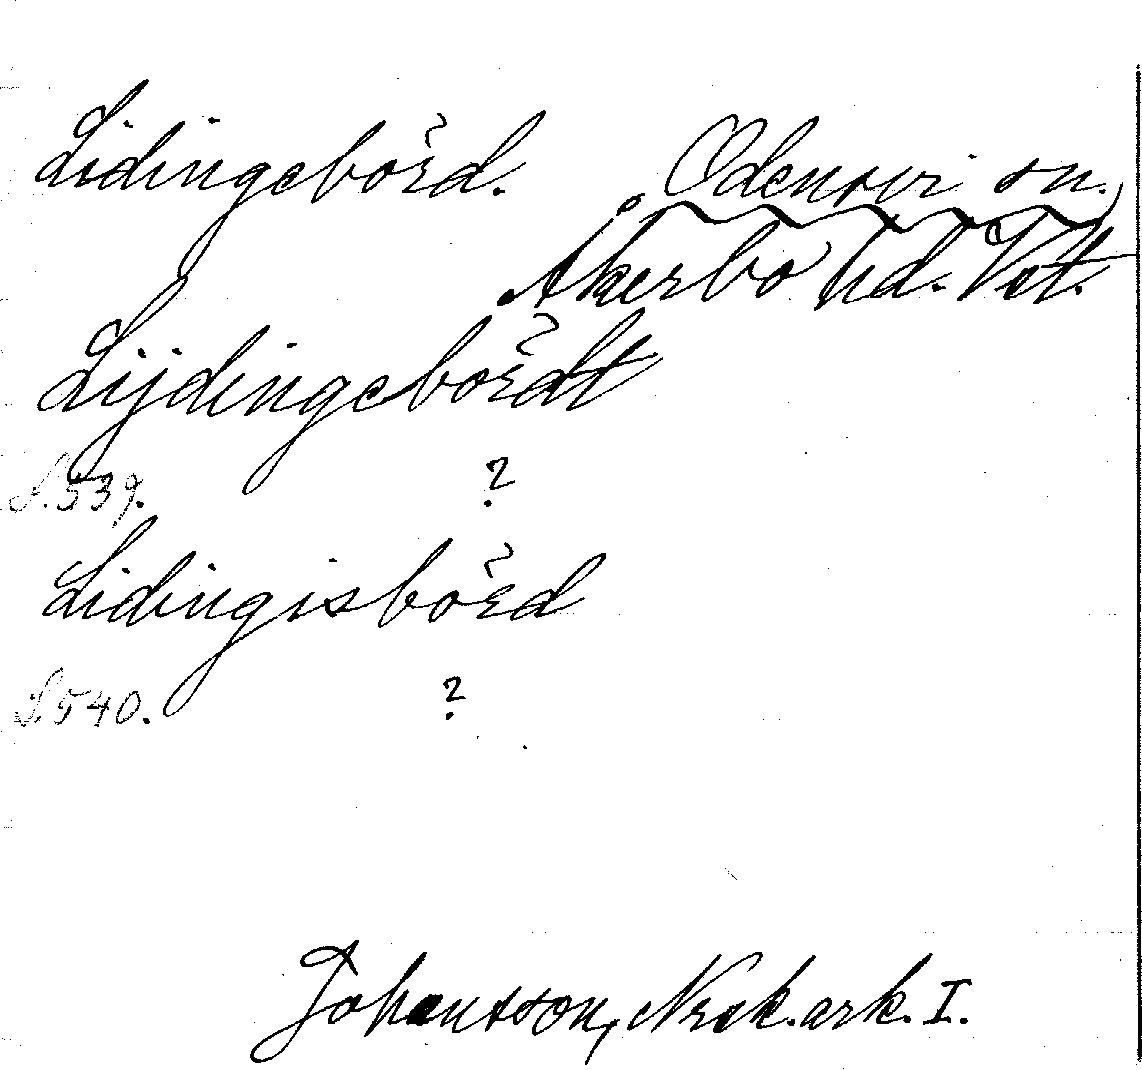 Lidingebörd. Odensvi sn.,
Åkerbo hd. Vst.
Lijdingebördt
S. 539. ?
Lidingisbörd
S. 540. ?
Johansson, Nrsk. ark. I.